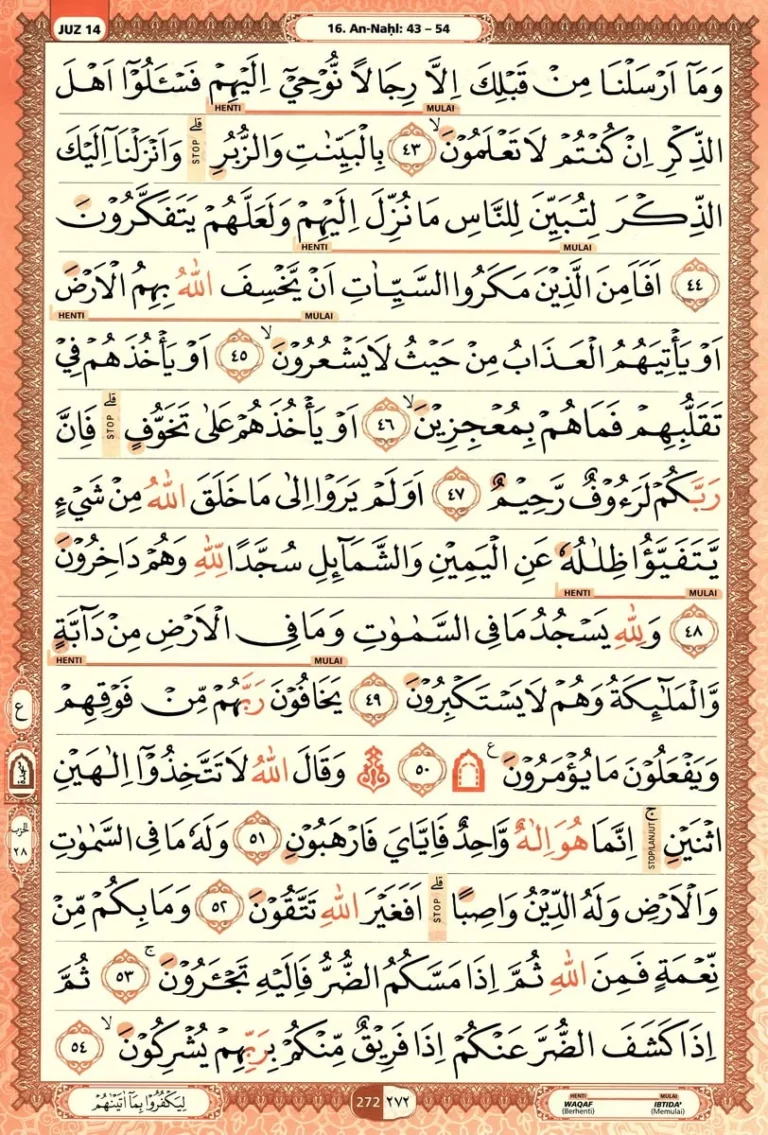 JUZ 14
16. An-Naḥl: 43 – 54
وَمَآ اَرْسَلْنَا مِنْ قَبْلِكَ اِلَّا رِجَالًا نُّوْحِيْٓ اِلَيْهِمْ فَسْـَٔلُوْٓا اَهْلَ
HENTI MULAI
الذِّكْرِ اِنْ كُنْتُمْ لَا تَعْلَمُوْنَۙ ٤٣ بِالْبَيِّنٰتِ وَالزُّبُرِۗ STOP وَاَنْزَلْنَآ اِلَيْكَ
الذِّكْرَ لِتُبَيِّنَ لِلنَّاسِ مَا نُزِّلَ اِلَيْهِمْ وَلَعَلَّهُمْ يَتَفَكَّرُوْنَ
HENTI MULAI
٤٤ اَفَاَمِنَ الَّذِيْنَ مَكَرُوا السَّيِّاٰتِ اَنْ يَّخْسِفَ اللّٰهُ بِهِمُ الْاَرْضَ
HENTI MULAI
اَوْ يَأْتِيَهُمُ الْعَذَابُ مِنْ حَيْثُ لَا يَشْعُرُوْنَۙ ٤٥ اَوْ يَأْخُذَهُمْ فِيْ
تَقَلُّبِهِمْ فَمَا هُمْ بِمُعْجِزِيْنَۙ ٤٦ اَوْ يَأْخُذَهُمْ عَلٰى تَخَوُّفٍۗ STOP فَاِنَّ
رَبَّكُمْ لَرَءُوْفٌ رَّحِيْمٌ ٤٧ اَوَلَمْ يَرَوْا اِلٰى مَا خَلَقَ اللّٰهُ مِنْ شَيْءٍ
يَّتَفَيَّؤُا ظِلٰلُهٗ عَنِ الْيَمِيْنِ وَالشَّمَاۤىِٕلِ سُجَّدًا لِّلّٰهِ وَهُمْ دَاخِرُوْنَ
HENTI MULAI
٤٨ وَلِلّٰهِ يَسْجُدُ مَا فِى السَّمٰوٰتِ وَمَا فِى الْاَرْضِ مِنْ دَاۤبَّةٍ
HENTI MULAI
وَّالْمَلٰۤىِٕكَةُ وَهُمْ لَا يَسْتَكْبِرُوْنَ ٤٩ يَخَافُوْنَ رَبَّهُمْ مِّنْ فَوْقِهِمْ
ع
وَيَفْعَلُوْنَ مَا يُؤْمَرُوْنَ ࣖ ٥٠ وَقَالَ اللّٰهُ لَا تَتَّخِذُوْٓا اِلٰهَيْنِ
سجدة
اثْنَيْنِۚ STOP/LANJUT اِنَّمَا هُوَ اِلٰهٌ وَّاحِدٌ فَاِيَّايَ فَارْهَبُوْنِ ٥١ وَلَهٗ مَا فِى السَّمٰوٰتِ
الحزب
٢٨
وَالْاَرْضِ وَلَهُ الدِّيْنُ وَاصِبًاۗ STOP اَفَغَيْرَ اللّٰهِ تَتَّقُوْنَ ٥٢ وَمَا بِكُمْ مِّنْ
نِّعْمَةٍ فَمِنَ اللّٰهِ ثُمَّ اِذَا مَسَّكُمُ الضُّرُّ فَاِلَيْهِ تَجْـَٔرُوْنَۚ ٥٣ ثُمَّ
اِذَا كَشَفَ الضُّرَّ عَنْكُمْ اِذَا فَرِيْقٌ مِّنْكُمْ بِرَبِّهِمْ يُشْرِكُوْنَۙ ٥٤
لِيَكْفُرُوْا بِمَآ اٰتَيْنٰهُمْ
272 ٢٧٢
HENTI MULAI
WAQAF IBTIDA'
(Berhenti) (Memulai)